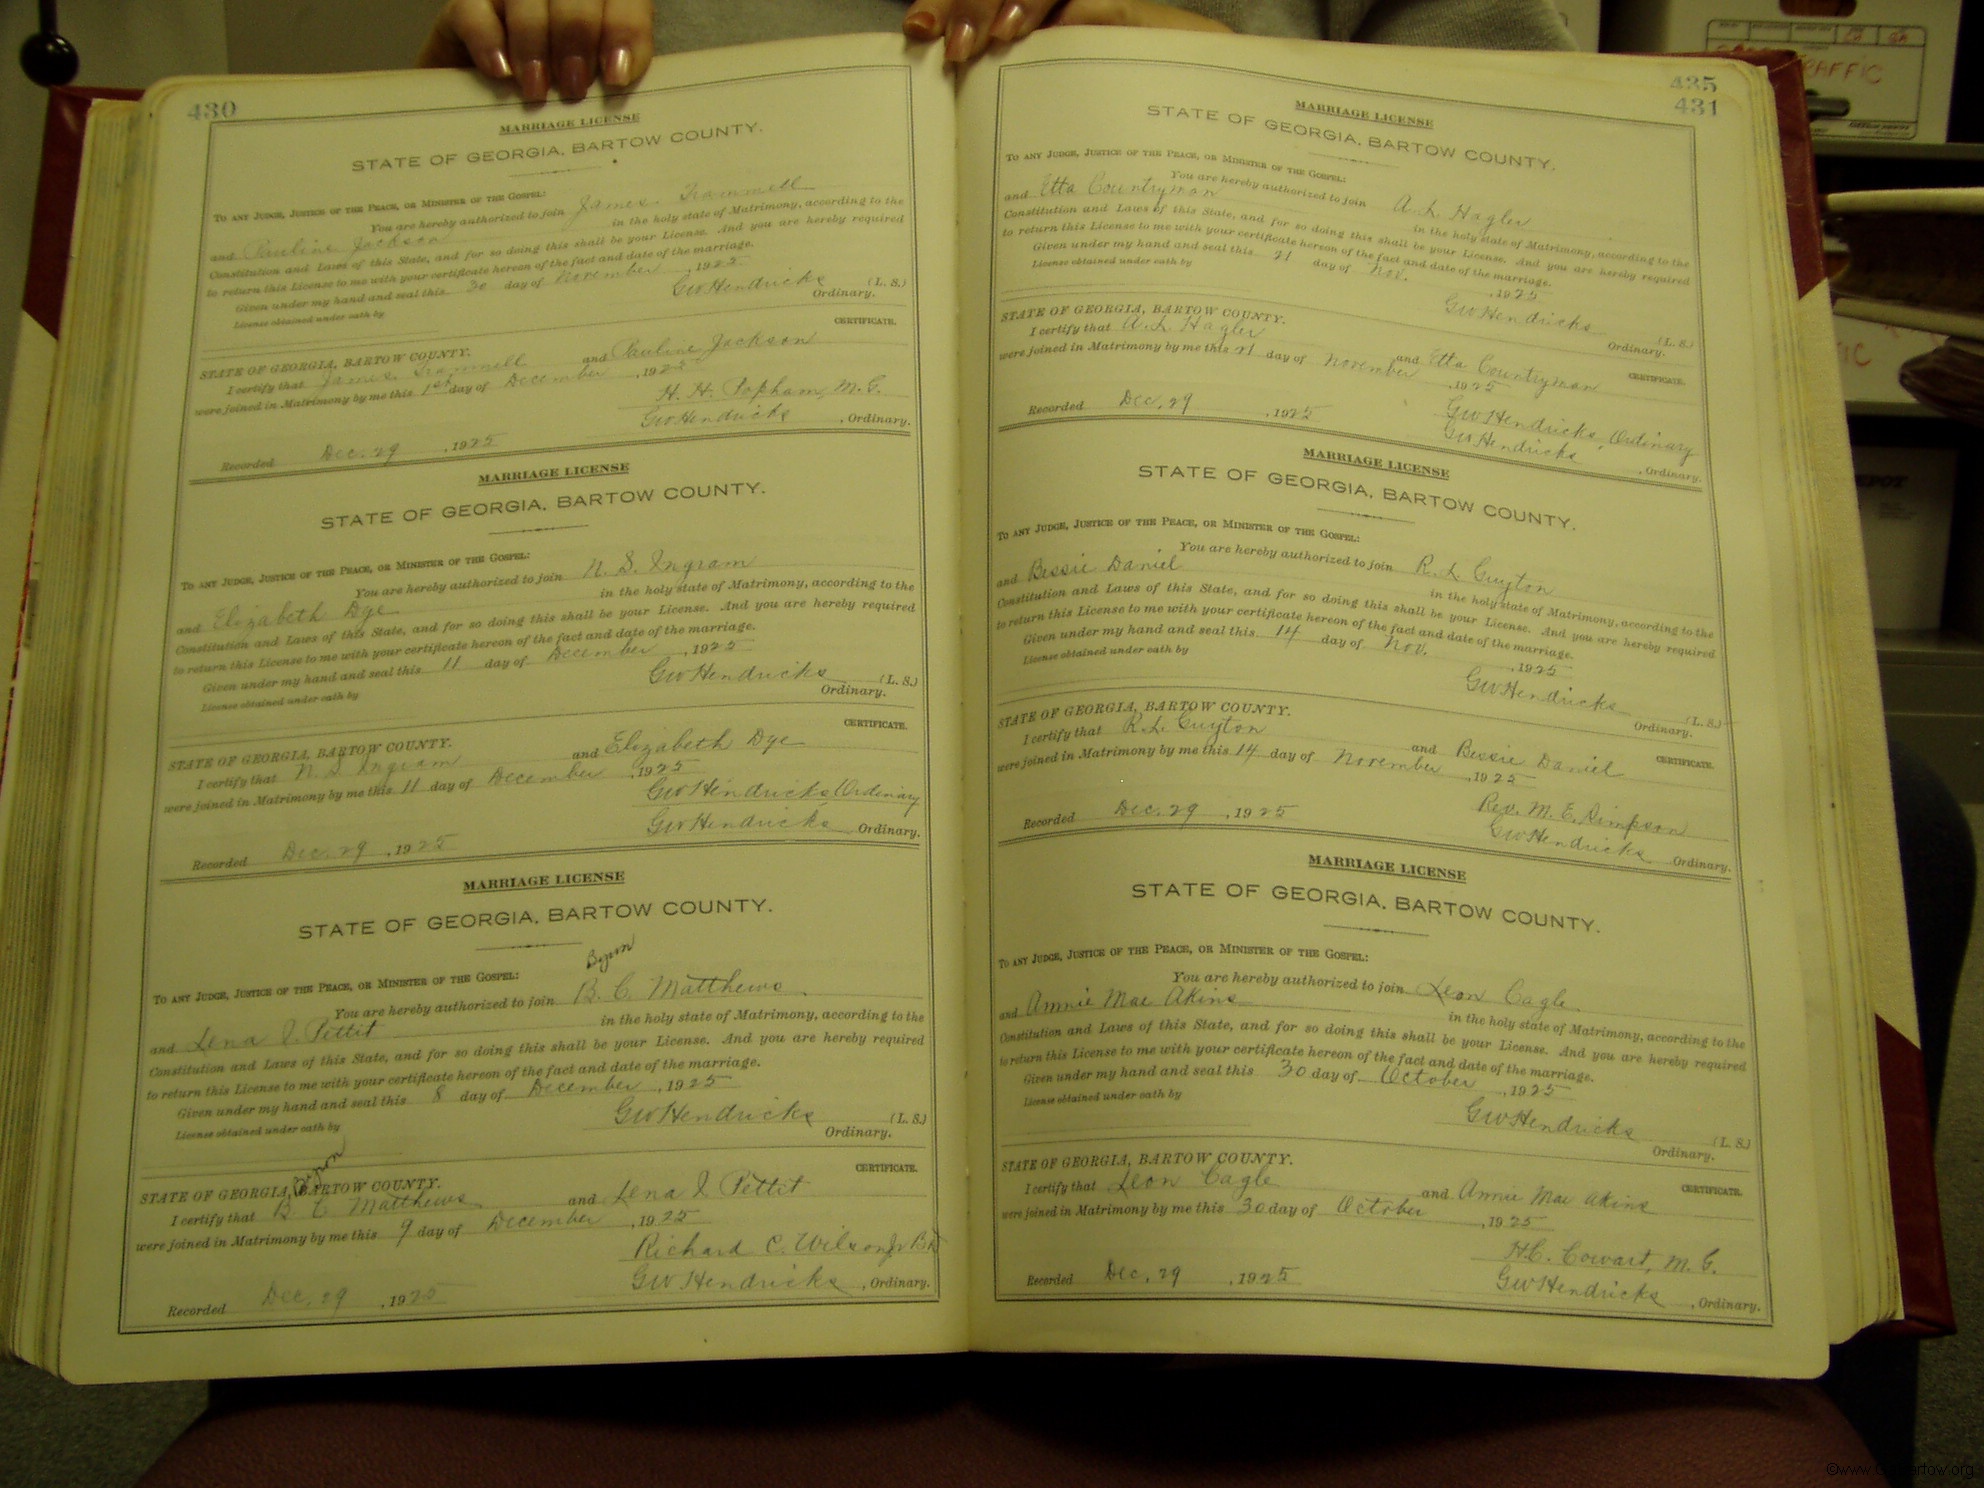 430
MARRIAGE LICENSE
STATE OF GEORGIA, BARTOW COUNTY.
TO ANY JUDGE, JUSTICE OF THE PEACE, OR MINISTER OF THE GOSPEL:
You are hereby authorized to join James Trammell
and Pauline Jackson in the holy state of Matrimony, according to the
Constitution and Laws of this State, and for so doing this shall be your License. And you are hereby required
to return this License to me with your certificate hereon of the fact and date of the marriage.
Given under my hand and seal this 30 day of November, 1925
License obtained under oath by GW Hendricks (L. S.)
Ordinary.
CERTIFICATE.
STATE OF GEORGIA, BARTOW COUNTY.
I certify that James Trammell and Pauline Jackson
were joined in Matrimony by me this 1st day of December, 1925
H. H. Popham, M. G.
GW Hendricks, Ordinary.
Recorded Dec. 29, 1925
MARRIAGE LICENSE
STATE OF GEORGIA, BARTOW COUNTY.
TO ANY JUDGE, JUSTICE OF THE PEACE, OR MINISTER OF THE GOSPEL:
You are hereby authorized to join N. S. Ingram
and Elizabeth Dye in the holy state of Matrimony, according to the
Constitution and Laws of this State, and for so doing this shall be your License. And you are hereby required
to return this License to me with your certificate hereon of the fact and date of the marriage.
Given under my hand and seal this 11 day of December, 1925
License obtained under oath by GW Hendricks (L. S.)
Ordinary.
CERTIFICATE.
STATE OF GEORGIA, BARTOW COUNTY.
I certify that N. S. Ingram and Elizabeth Dye
were joined in Matrimony by me this 11 day of December, 1925
GW Hendricks Ordinary
GW Hendricks Ordinary.
Recorded Dec. 29, 1925
MARRIAGE LICENSE
STATE OF GEORGIA, BARTOW COUNTY.
Byron
TO ANY JUDGE, JUSTICE OF THE PEACE, OR MINISTER OF THE GOSPEL:
You are hereby authorized to join B. C. Matthews
and Lena I Pettit in the holy state of Matrimony, according to the
Constitution and Laws of this State, and for so doing this shall be your License. And you are hereby required
to return this License to me with your certificate hereon of the fact and date of the marriage.
Given under my hand and seal this 8 day of December, 1925
License obtained under oath by GW Hendricks (L. S.)
Ordinary.
CERTIFICATE.
Byron
STATE OF GEORGIA, BARTOW COUNTY.
I certify that B C Matthews and Lena I Pettit
were joined in Matrimony by me this 9 day of December, 1925
Richard C. Wilson Jr
GW Hendricks, Ordinary.
Recorded Dec. 29, 1925
435
431
MARRIAGE LICENSE
STATE OF GEORGIA, BARTOW COUNTY.
TO ANY JUDGE, JUSTICE OF THE PEACE, OR MINISTER OF THE GOSPEL:
You are hereby authorized to join A. L. Hagler
and Etta Countryman in the holy state of Matrimony, according to the
Constitution and Laws of this State, and for so doing this shall be your License. And you are hereby required
to return this License to me with your certificate hereon of the fact and date of the marriage.
Given under my hand and seal this 21 day of Nov., 1925
License obtained under oath by GW Hendricks (L. S.)
Ordinary.
CERTIFICATE.
STATE OF GEORGIA, BARTOW COUNTY.
I certify that A. L. Hagler and Etta Countryman
were joined in Matrimony by me this 21 day of November, 1925
GW Hendricks, Ordinary
GW Hendricks, Ordinary.
Recorded Dec. 29, 1925
MARRIAGE LICENSE
STATE OF GEORGIA, BARTOW COUNTY.
TO ANY JUDGE, JUSTICE OF THE PEACE, OR MINISTER OF THE GOSPEL:
You are hereby authorized to join R. L. Guyton
and Bessie Daniel in the holy state of Matrimony, according to the
Constitution and Laws of this State, and for so doing this shall be your License. And you are hereby required
to return this License to me with your certificate hereon of the fact and date of the marriage.
Given under my hand and seal this 14 day of Nov., 1925
License obtained under oath by GW Hendricks (L. S.)
Ordinary.
CERTIFICATE.
STATE OF GEORGIA, BARTOW COUNTY.
I certify that R. L. Guyton and Bessie Daniel
were joined in Matrimony by me this 14 day of November, 1925
Rev. M. E. Simpson
GW Hendricks Ordinary.
Recorded Dec. 29, 1925
MARRIAGE LICENSE
STATE OF GEORGIA, BARTOW COUNTY.
TO ANY JUDGE, JUSTICE OF THE PEACE, OR MINISTER OF THE GOSPEL:
You are hereby authorized to join Leon Cagle
and Annie Mae Akins in the holy state of Matrimony, according to the
Constitution and Laws of this State, and for so doing this shall be your License. And you are hereby required
to return this License to me with your certificate hereon of the fact and date of the marriage.
Given under my hand and seal this 30 day of October, 1925
License obtained under oath by GW Hendricks (L. S.)
Ordinary.
CERTIFICATE.
STATE OF GEORGIA, BARTOW COUNTY.
I certify that Leon Cagle and Annie Mae Akins
were joined in Matrimony by me this 30 day of October, 1925
H.C. Cowart, M. G.
GW Hendricks, Ordinary.
Recorded Dec. 29, 1925
TRAFFIC